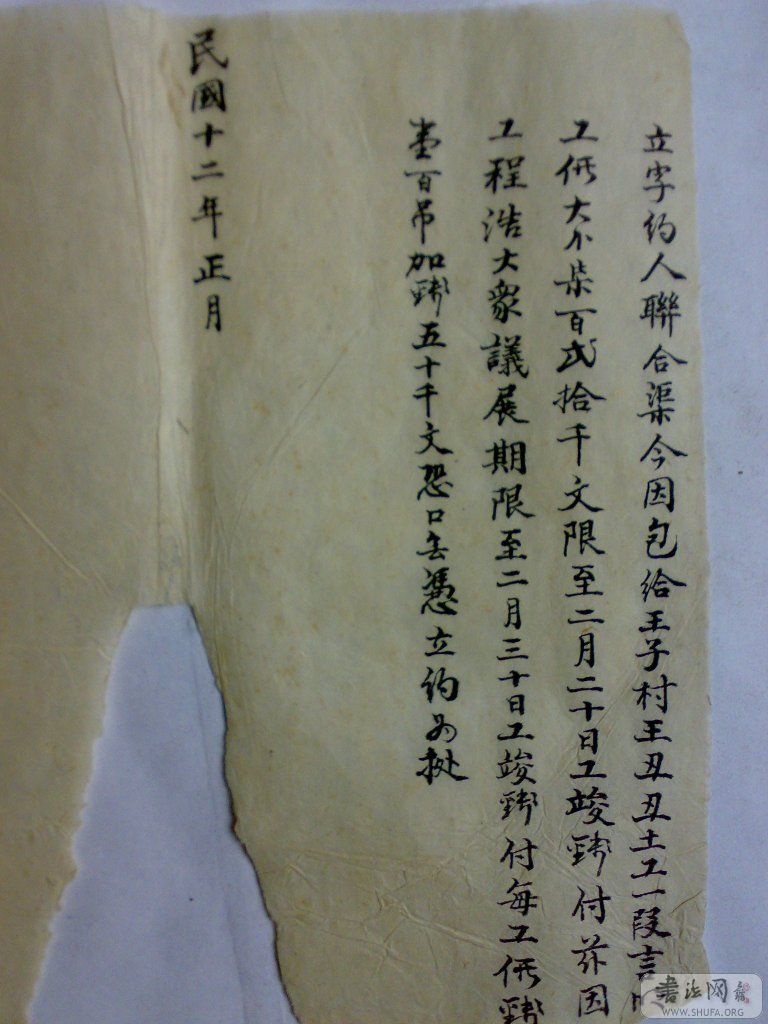 立字約人聯合渠今因包給王子村王丑丑土工一段言
工価大小柒百弍拾千文限至二月二十日工竣錢付茲因
工程浩大衆議展期限至二月三十日工竣錢付每工価錢
壹百吊加錢五十千文恐口無憑立約為據
民國十二年正月
書法网
WWW.SHUFA.ORG